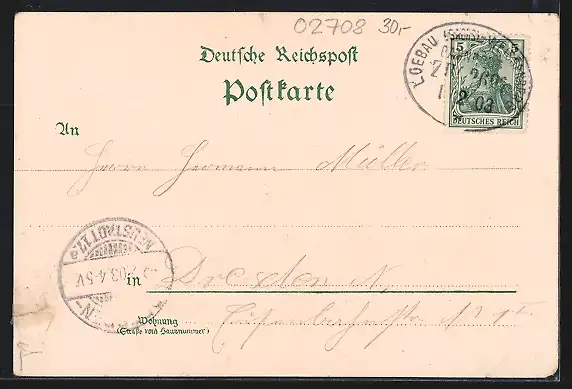 02708 30,-
Deutsche Reichspost
Postkarte
LOEBAU (SACHS)
5 5
2 03
DEUTSCHES REICH
An
Herrn Hermann Müller
NEUSTADT 17.a
03.4-5V
in Dresden N,
Wohnung
(Straße und Hausnummer)